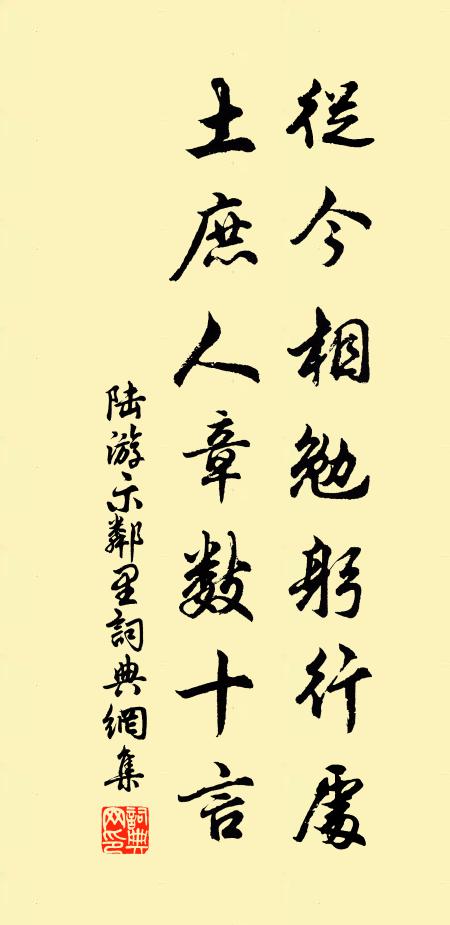 從今相勉躬行處
土庶人章數十言
陆游示鄰里詞典網集
詞典网印